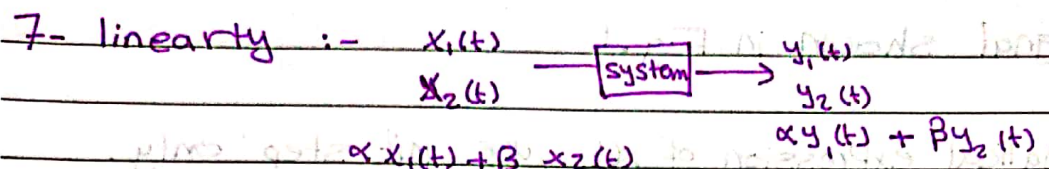 7- linearty :- x₁(t) system y₁(t)
x₂(t) y₂(t)
αx₁(t) + β x₂(t) αy₁(t) + βy₂(t)